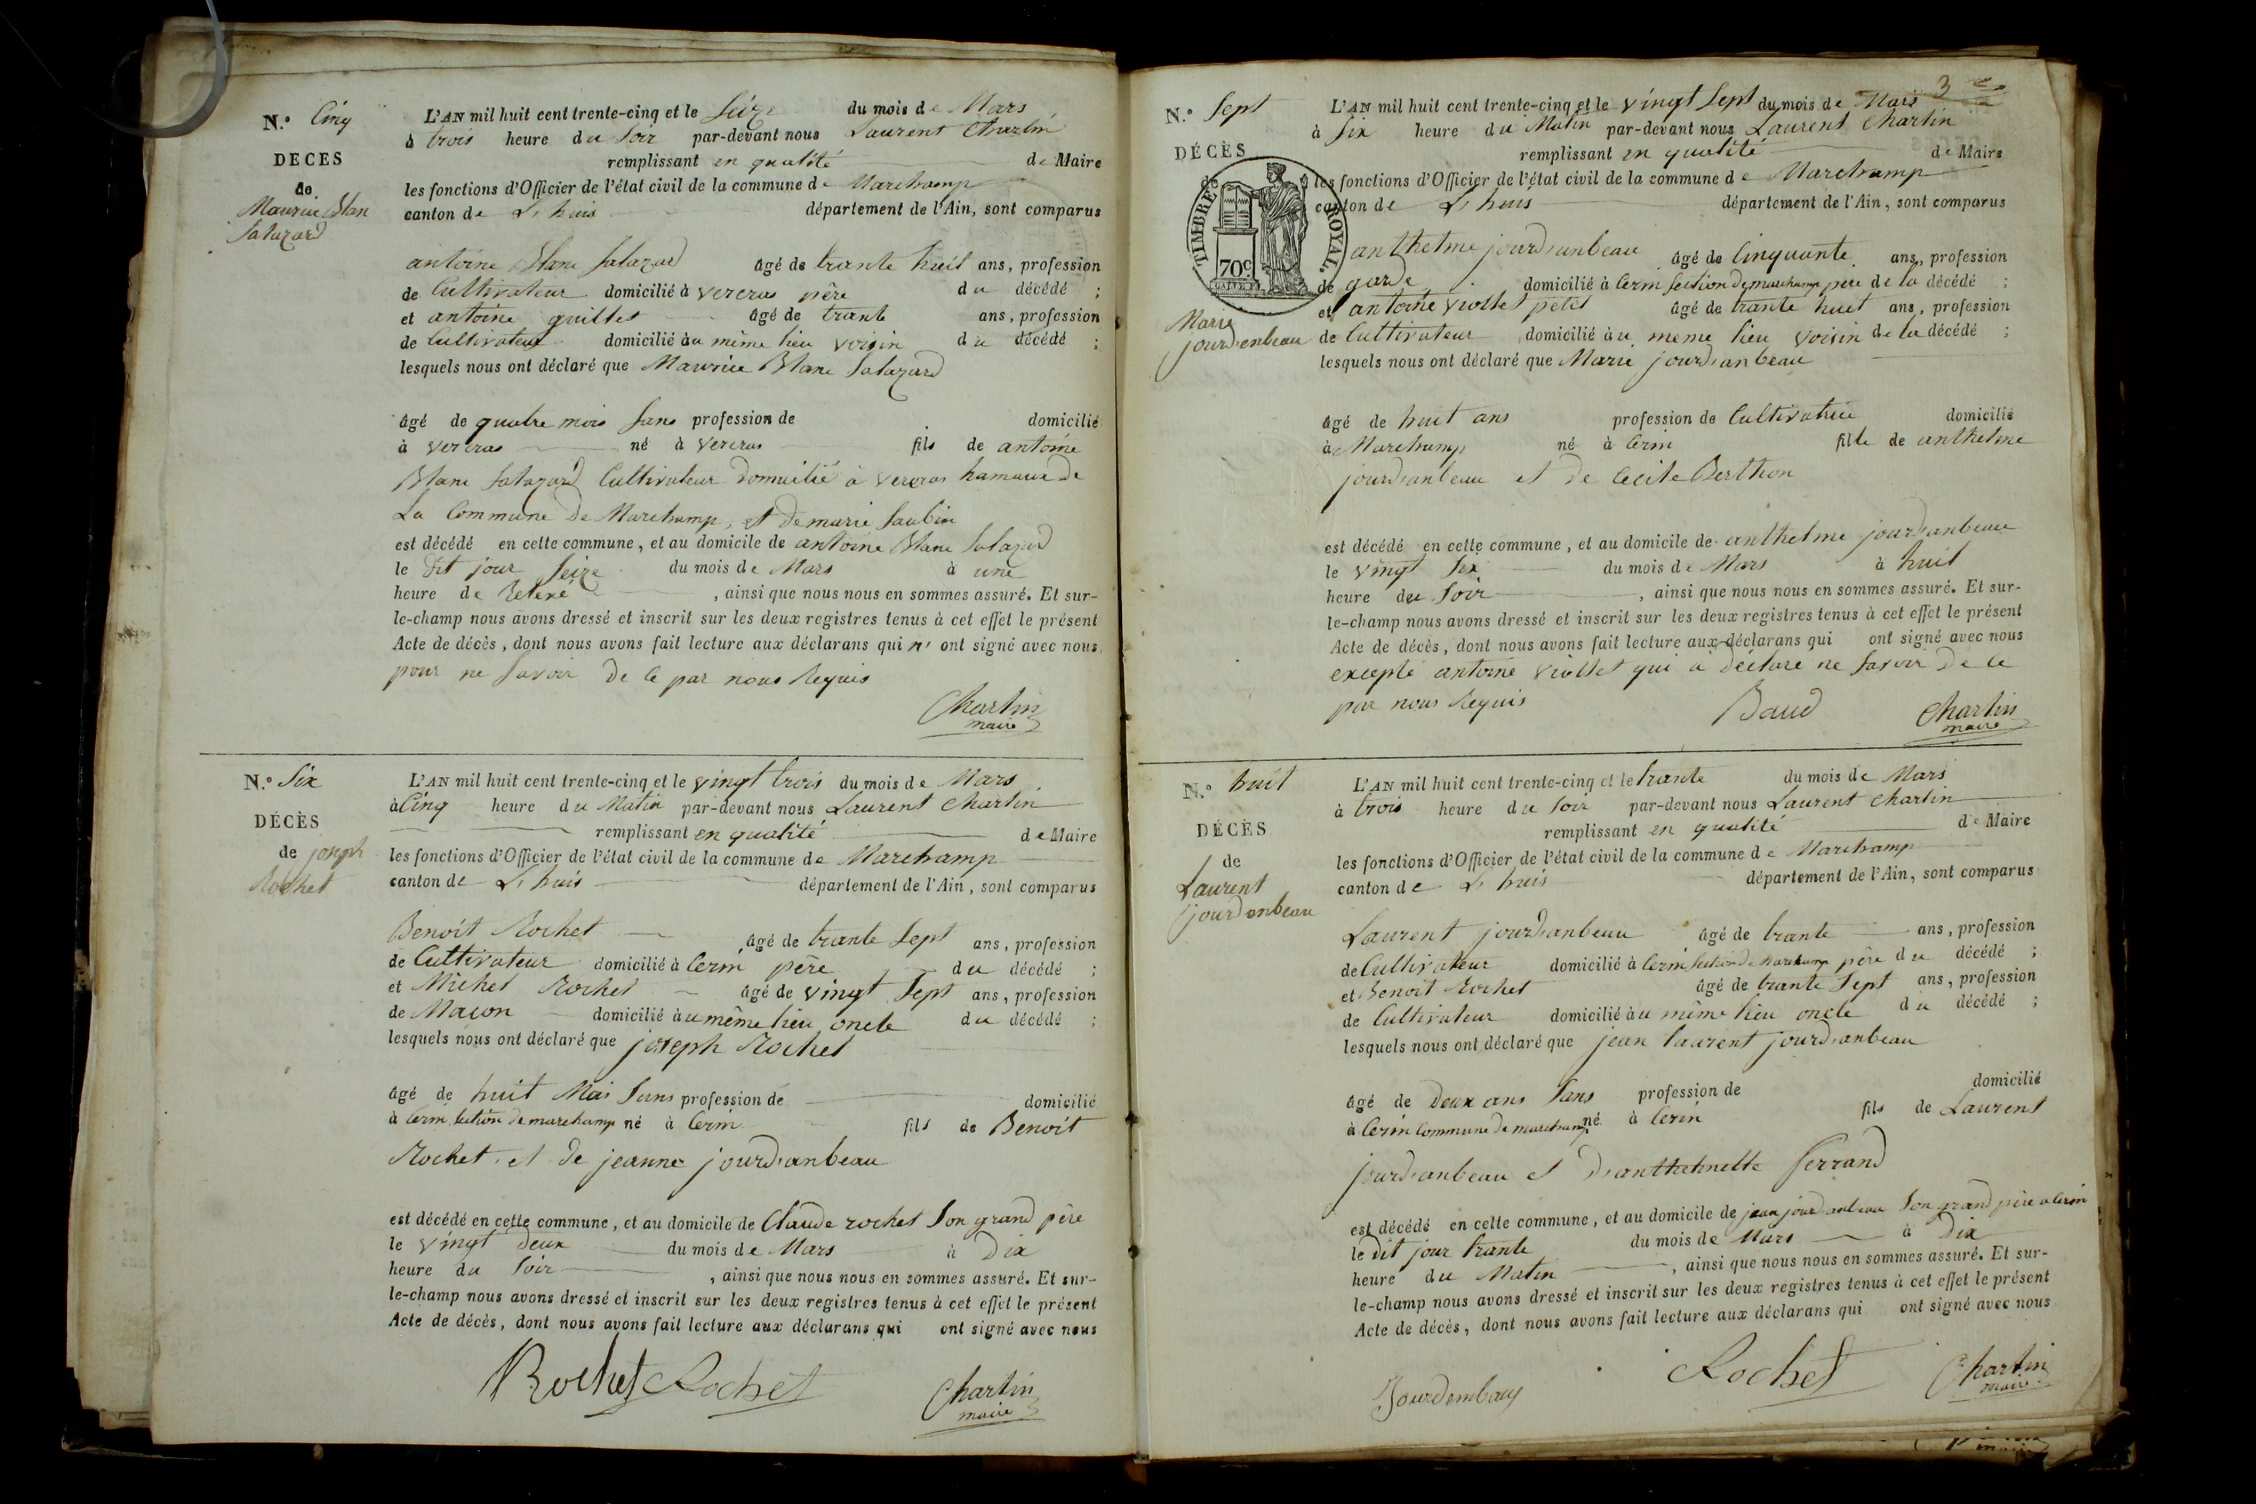 N.° Cinq
DÉCÈS
de
Maurice Blanc
Salazard
L'AN mil huit cent trente-cinq et le Seize du mois de Mars
à trois heure du Soir par-devant nous Laurent Chartin
remplissant en qualité de Maire
les fonctions d'Officier de l'état civil de la commune de Marchamp
canton de L'huis département de l'Ain, sont comparus
antoine Blanc Salazard âgé de trante huit ans, profession
de Cultivateur domicilié à vercras père du décédé ;
et antoine guillet âgé de trante ans, profession
de Cultivateur domicilié au même lieu voisin du décédé ;
lesquels nous ont déclaré que Maurice Blanc Salazard
âgé de quatre mois Sans profession de domicilié
à vercras né à vercras fils de antoine
Blanc Salazard Cultivateur domicilié à vercras hamaux de
La Commune de Marchamp, et de marie Saubin
est décédé en cette commune, et au domicile de antoine Blanc Salazard
le dit jour Seize du mois de Mars à une
heure de Relevé, ainsi que nous nous en sommes assuré. Et sur-
le-champ nous avons dressé et inscrit sur les deux registres tenus à cet effet le présent
Acte de décès, dont nous avons fait lecture aux déclarans qui n' ont signé avec nous
pour ne Savoir de ce par nous Requis
Chartin
maire
N.° Six
DÉCÈS
de joseph
Rochet
L'AN mil huit cent trente-cinq et le vingt trois du mois de Mars
à Cinq heure du Matin par-devant nous Laurent Chartin
remplissant en qualité de Maire
les fonctions d'Officier de l'état civil de la commune de Marchamp
canton de L'huis département de l'Ain, sont comparus
Benoit Rochet âgé de trante Sept ans, profession
de Cultivateur domicilié à Cerin père du décédé ;
et Michel Rochet âgé de vingt Sept ans, profession
de Maçon domicilié au même lieu oncle du décédé ;
lesquels nous ont déclaré que joseph Rochet
âgé de huit Mois Sans profession de domicilié
à Cerin Section de marchamp né à Cerin fils de Benoit
Rochet et de jeanne jourd'anbeau
est décédé en cette commune, et au domicile de Claude rochet Son grand père
le vingt deux du mois de Mars à Dix
heure du Soir, ainsi que nous nous en sommes assuré. Et sur-
le-champ nous avons dressé et inscrit sur les deux registres tenus à cet effet le présent
Acte de décès, dont nous avons fait lecture aux déclarans qui ont signé avec nous
Rochet Rochet
Chartin
maire
3
N.° Sept
DÉCÈS
de
TIMBRE ROYAL.
70 c.
Marie
jourd'enbeau
L'AN mil huit cent trente-cinq et le vingt Sept du mois de Mars
à Six heure du Matin par-devant nous Laurent Chartin
remplissant en qualité de Maire
les fonctions d'Officier de l'état civil de la commune de Marchamp
canton de L'huis département de l'Ain, sont comparus
anthelme jourd'anbeau âgé de Cinquante ans, profession
de garde domicilié à Cerin Section de marchamp père de la décédé ;
et antoine viollet petit âgé de trante huit ans, profession
de Cultivateur domicilié au même lieu voisin de la décédé ;
lesquels nous ont déclaré que Marie jourd'anbeau
âgé de huit ans profession de Cultivatrice domicilié
à Marchamp né à Cerin fille de anthelme
jourd'anbeau et de Cecile Berthon
est décédé en cette commune, et au domicile de anthelme jourd'anbeau
le vingt Six du mois de Mars à huit
heure du Soir, ainsi que nous nous en sommes assuré. Et sur-
le-champ nous avons dressé et inscrit sur les deux registres tenus à cet effet le présent
Acte de décès, dont nous avons fait lecture aux déclarans qui ont signé avec nous
excepté antoine viollet qui a déclaré ne Savoir de ce
par nous Requis
Baud
Chartin
maire
N.° huit
DÉCÈS
de
Laurent
jourdonbeau
L'AN mil huit cent trente-cinq et le trante du mois de Mars
à trois heure du Soir par-devant nous Laurent Chartin
remplissant en qualité de Maire
les fonctions d'Officier de l'état civil de la commune de Marchamp
canton de L'huis département de l'Ain, sont comparus
Laurent jourd'anbeau âgé de trante ans, profession
de Cultivateur domicilié à Cerin Section de Marchamp père du décédé ;
et Benoit Rochet âgé de trante Sept ans, profession
de Cultivateur domicilié au même lieu oncle du décédé ;
lesquels nous ont déclaré que jean laurent jourd'anbeau
âgé de Deux ans Sans profession de domicilié
à Cerin Commune de marchamp né à Cerin fils de Laurent
jourd'anbeau et D'anthelmette ferrand
est décédé en cette commune, et au domicile de jean jourd'anbeau Son grand père a Cerin
le dit jour trante du mois de Mars à Dix
heure du Matin, ainsi que nous nous en sommes assuré. Et sur-
le-champ nous avons dressé et inscrit sur les deux registres tenus à cet effet le présent
Acte de décès, dont nous avons fait lecture aux déclarans qui ont signé avec nous
Rochet
Chartin
maire